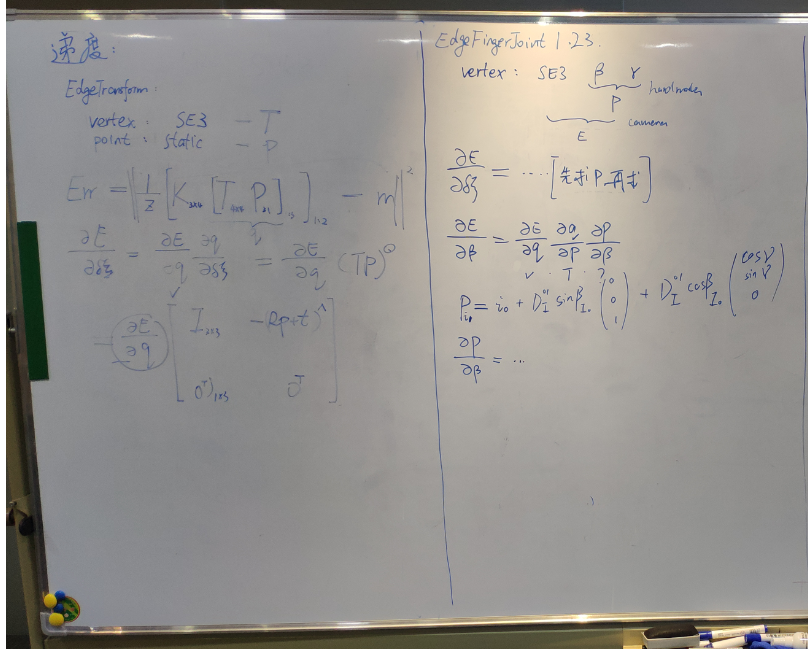 速度:
EdgeTransform:
vertex: SE3 — T
point: static — P
Err = ‖ 1/z [K [T₄ₓ₄ P]₁:₃ ]₁:₂ − m ‖²
q
∂E/∂δξ = ∂E/∂q ∂q/∂δξ = ∂E/∂q (TP)^⊙
∂E/∂q [ I₃ₓ₃ −(Rp+t)^∧
0ᵀ₁ₓ₃ 0ᵀ ]
EdgeFingerJoint 1.23.
vertex: SE3 β γ handmodel
P
camera
E
∂E/∂δξ = ....[先求P再求]
∂E/∂β = ∂E/∂q ∂q/∂P ∂P/∂β
✓ T ?
P = i₀ + D_I^01 sinβ_I₀ (0 0 1) + D_I^01 cosβ_I₀ (cosγ sinγ 0)
∂P/∂β = ...